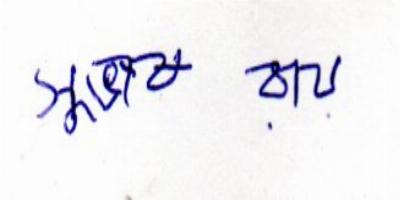 সুভাষ রায়